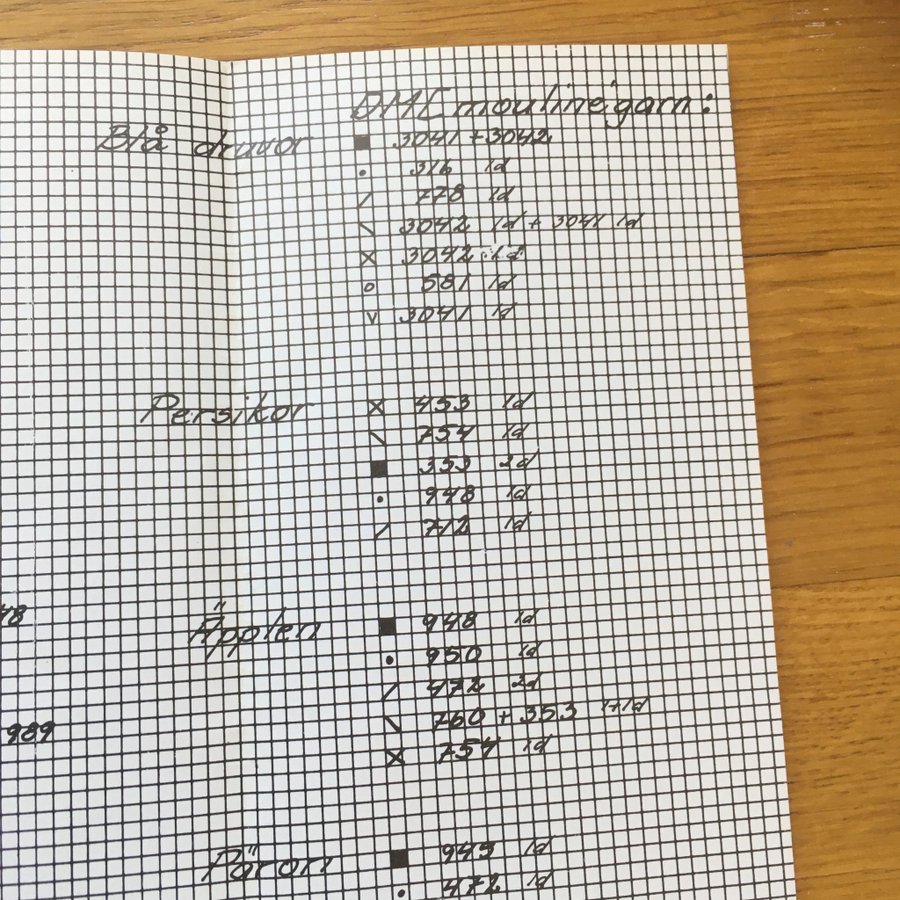 DMC moulinégarn:
Blå druvor ■ 3041 + 3042
• 316 1d
/ 778 1d
\ 3042 1d + 3041 1d
X 3042
o 581 1d
V 3041 1d
Persikor X 453 1d
\ 754 1d
■ 353 2d
• 948 1d
/ 712 1d
Äpplen ■ 948 1d
• 950 1d
/ 472 2d
\ 760 + 353 1+1d
X 754 1d
989
Päron ■ 945 1d
• 472 1d